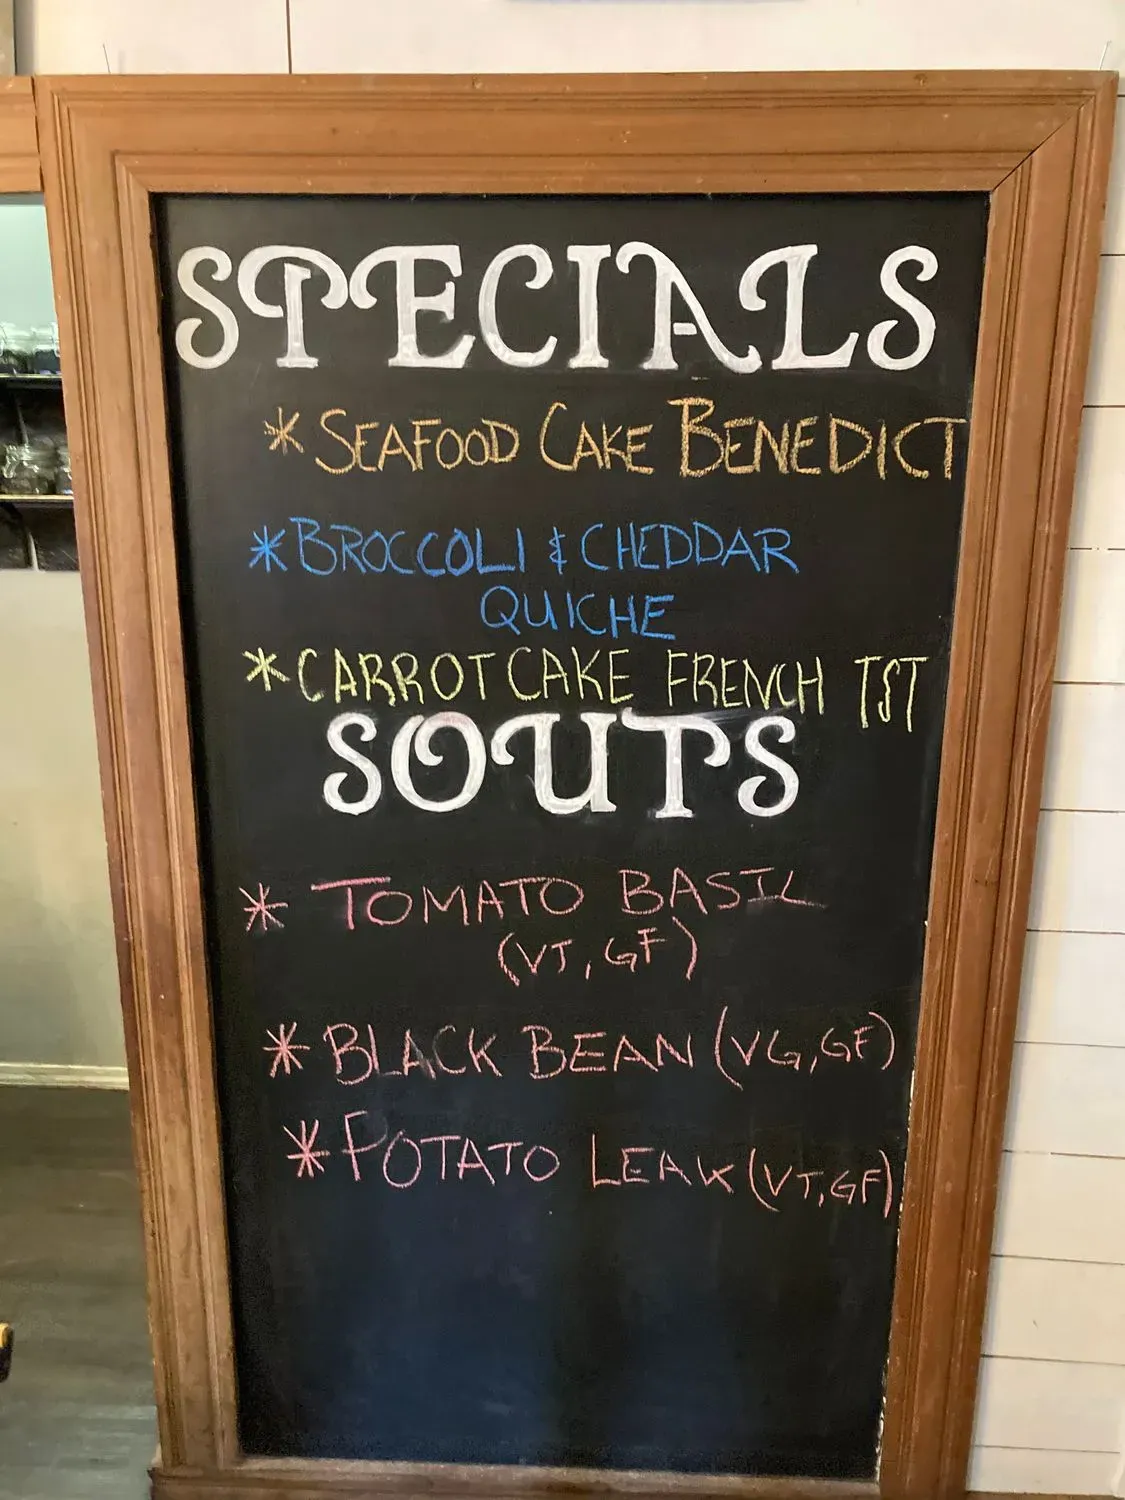 SPECIALS
* SEAFOOD CAKE BENEDICT
* BROCCOLI & CHEDDAR
QUICHE
* CARROT CAKE FRENCH TST
SOUPS
* TOMATO BASIL
(VT, GF)
* BLACK BEAN (VG, GF)
* POTATO LEAK (VT, GF)